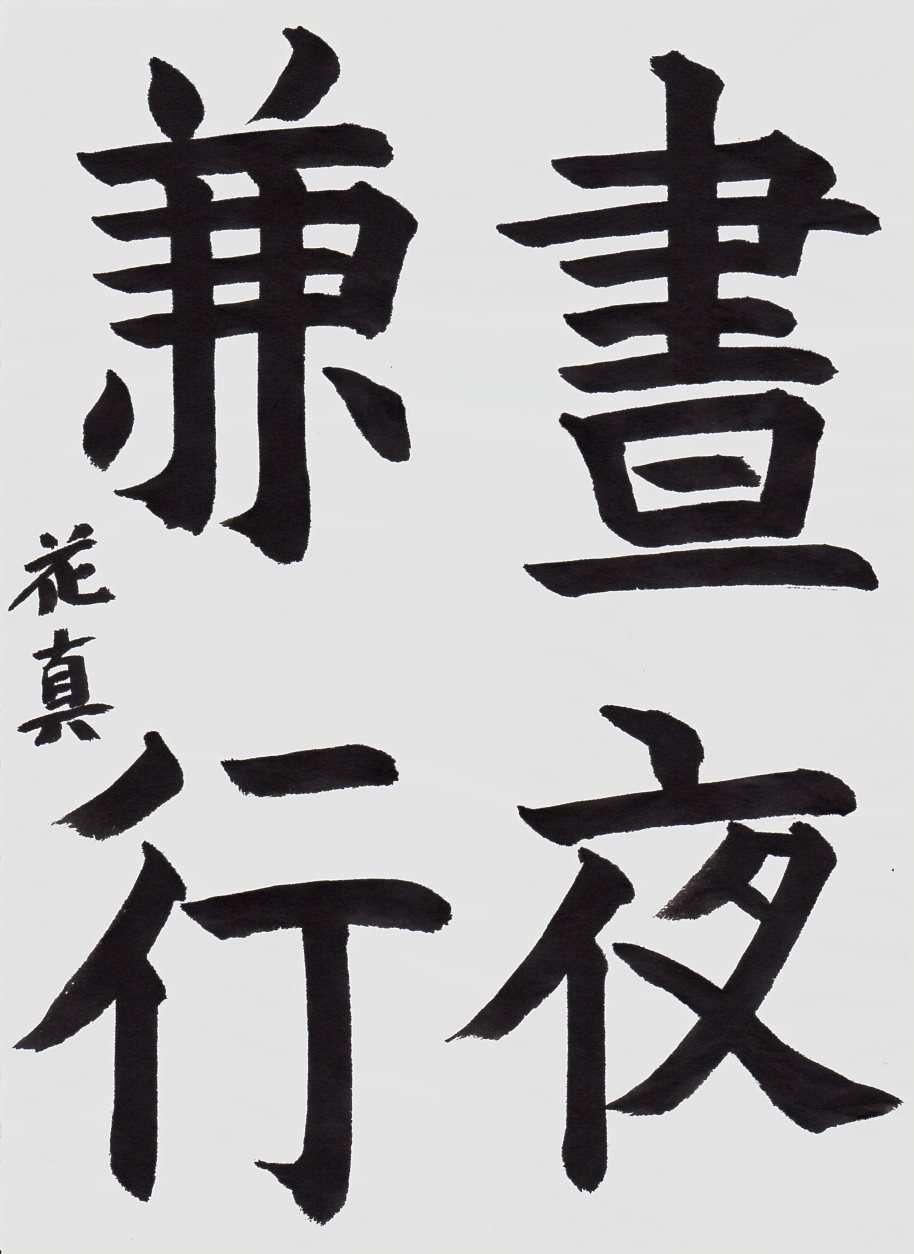 晝夜
兼行
花真